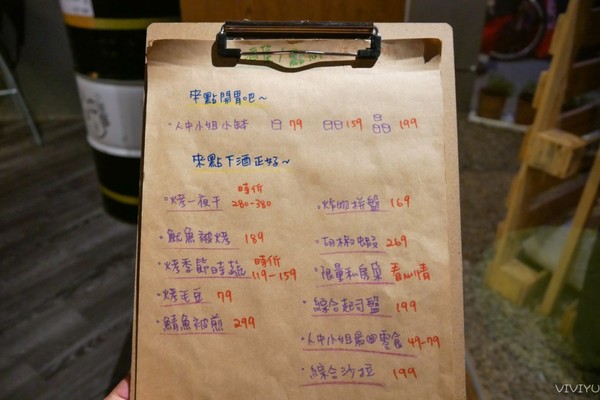 來點開胃吧～
·人中小姐小缽 79 159 199
來點下酒正好～
·烤一夜干 時価 280-380
·魷魚被烤 189
·烤季節時蔬 時価 119-159
·烤毛豆 79
·鯖魚被煎 299
·炸物拼盤 169
·胡椒蝦 269
·限量私房菜 看心情
·綜合起司盤 199
·人中小姐最四零食 49-79
·綜合沙拉 199
VIVIYU